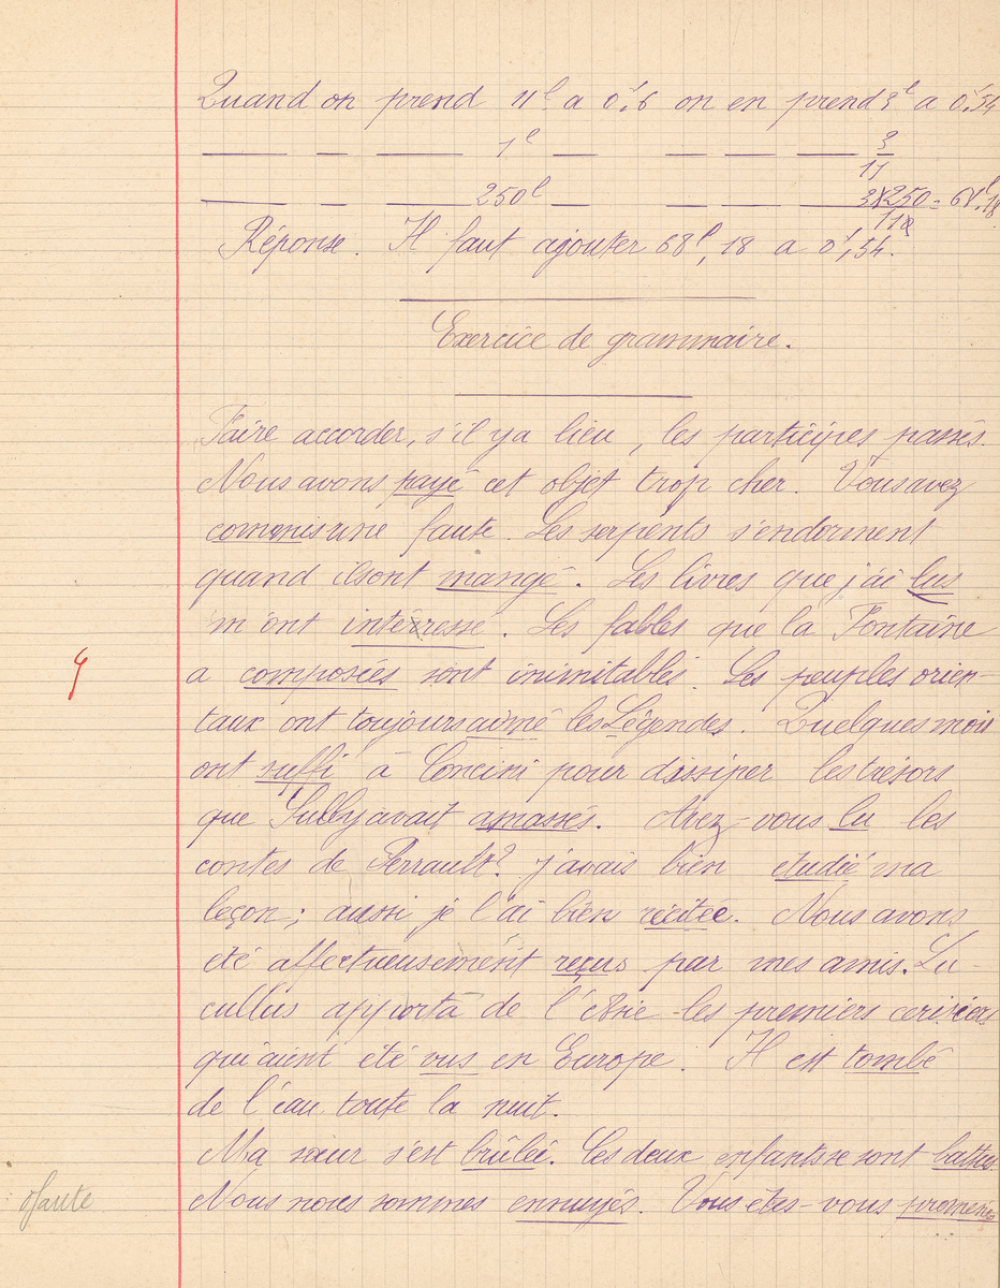 Quand on prend 11ˡ a 0ᶠ,6 on en prend 3ˡ a 0ᶠ,54
— — — 1ˡ — — — — 3/11
— — — 250ˡ — — — — 3×250/11 = 68ˡ,18
Réponse. Il faut ajouter 68ˡ,18 a 0ᶠ,54.
Exercice de grammaire.
Faire accorder, s'il y a lieu, les participes passés.
Nous avons payé cet objet trop cher. Vous avez
commis une faute. Les serpents s'endorment
quand ils ont mangé. Les livres que j'ai lus
m'ont intéressé. Les fables que la Fontaine
a composées sont inimitables. Les peuples orien-
taux ont toujours aimé les Légendes. Quelques mois
ont suffi à Concini pour dissiper les trésors
que Sully avait amassés. Avez-vous lu les
contes de Perrault? j'avais bien etudié ma
leçon; aussi je l'ai bien récitée. Nous avons
été affectueusement reçus par mes amis. Lu-
cullus apporta de l'Asie les premiers cerisiers
qui aient été vus en Europe. Il est tombé
de l'eau toute la nuit.
Ma sœur s'est brûlée. Ces deux enfants se sont battus.
Nous nous sommes ennuyés. Vous êtes-vous promenés
9
0 faute